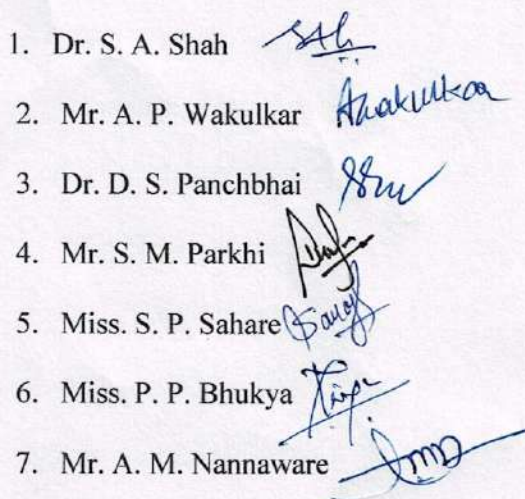 1. Dr. S. A. Shah
2. Mr. A. P. Wakulkar
3. Dr. D. S. Panchbhai
4. Mr. S. M. Parkhi
5. Miss. S. P. Sahare
6. Miss. P. P. Bhukya
7. Mr. A. M. Nannaware